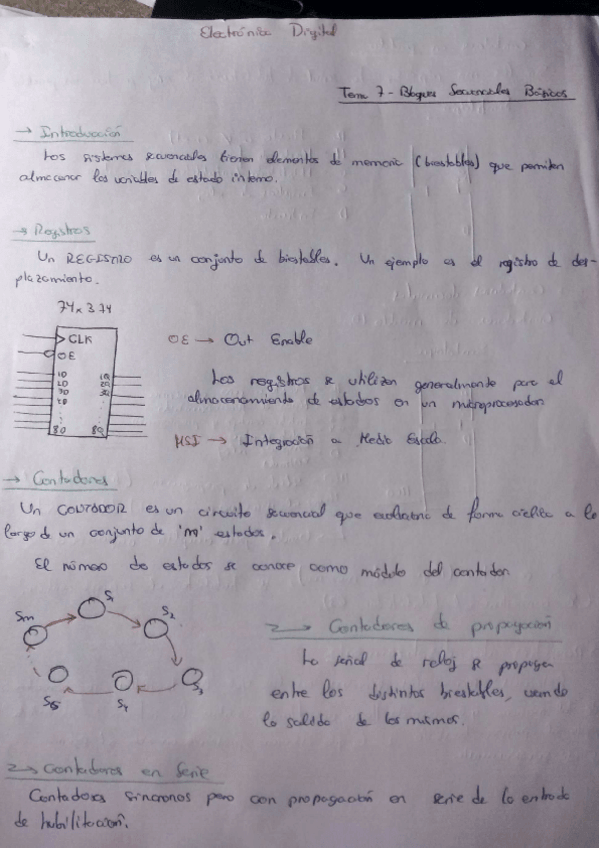 Electrónica Digital
Tema 7 - Bloques Secuenciales Básicos
→ Introducción
Los sistemas secuenciales tienen elementos de memoria (biestables) que permiten
almacenar las variables de estado interno.
→ Registros
Un REGISTRO es un conjunto de biestables. Un ejemplo es el registro de des-
plazamiento.
74x374
CLK
OE
1D 1Q
2D 2Q
3D 3Q
4D
8D 8Q
OE → Out Enable
Los registros se utilizan generalmente para el
almacenamiento de estados en un microprocesador
MSI → Integración a Media Escala.
→ Contadores
Un CONTADOR es un circuito secuencial que evoluciona de forma cíclica a lo
largo de un conjunto de 'm' estados.
El número de estados se conoce como módulo del contador
Sm S1 S2 S3 S4 S5
2→ Contadores de propagación
La señal de reloj se propaga
entre los distintos biestables, usando
la salida de los mismos.
2→ Contadores en Serie
Contadores síncronos pero con propagación en serie de la entrada
de habilitación.